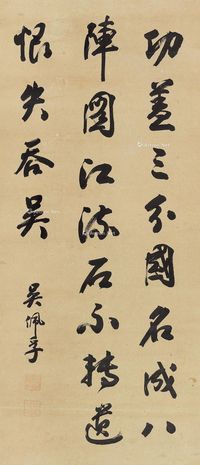 功盖三分國名成八
陣圖江流石不轉遺
恨失吞吳
吳佩孚